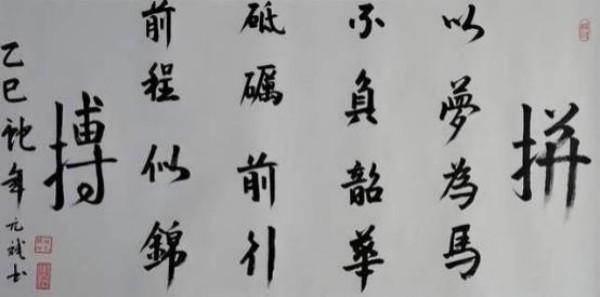 拼
以夢為馬
不負韶華
砥礪前行
前程似錦
搏
乙巳虵年 元斌书